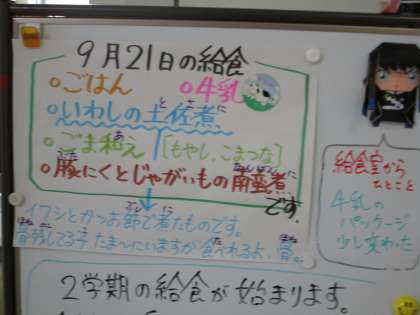 9月21日の給食
○ごはん ○牛乳
○いわしの土佐煮
○ごま和え[もやし、こまつな]
○豚にくとじゃがいもの南蛮煮
です。
イワシとかつお節で煮たものです。
骨残してる子、たま〜にいますが食べれるよ、骨。
給食室から
ひとこと
牛乳の
パッケージ
少し変わった
2学期の給食が始まります。